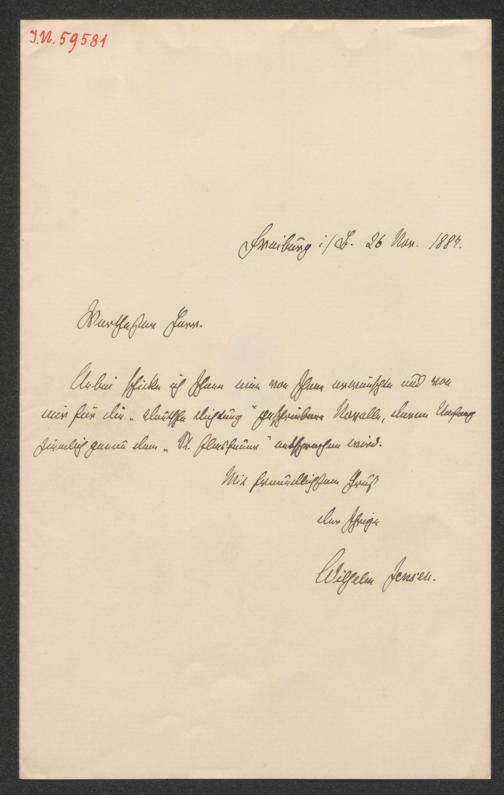 J.N. 59581
Freiburg i/B. 26 Nov. 1884.
Werthester Herr.
Anbei schicke ich Ihnen eine von Ihnen erwünschte und von
mir für die „Deutsche Dichtung“ geschriebene Novelle, deren Umfang
ziemlich genau dem „St. Elmsfeuer“ entsprechen wird.
Mit freundlichstem Gruß
der Ihrige
Wilhelm Jensen.